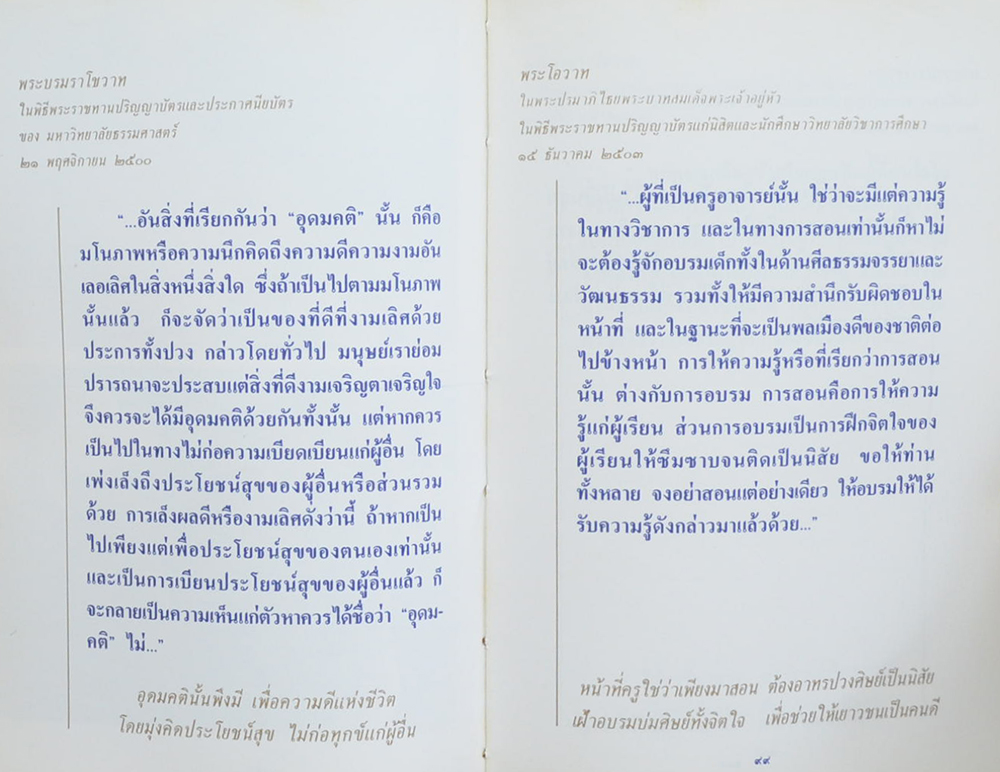 พระบรมราโชวาท
ในพิธีพระราชทานปริญญาบัตรและประกาศนียบัตร
ของ มหาวิทยาลัยธรรมศาสตร์
๒๑ พฤศจิกายน ๒๕๐๐
“...อันสิ่งที่เรียกกันว่า “อุดมคติ” นั้น ก็คือ
มโนภาพหรือความนึกคิดถึงความดีความงามอัน
เลอเลิศในสิ่งหนึ่งสิ่งใด ซึ่งถ้าเป็นไปตามมโนภาพ
นั้นแล้ว ก็จะจัดว่าเป็นของที่ดีที่งามเลิศด้วย
ประการทั้งปวง กล่าวโดยทั่วไป มนุษย์เราย่อม
ปรารถนาจะประสบแต่สิ่งที่ดีงามเจริญตาเจริญใจ
จึงควรจะได้มีอุดมคติด้วยกันทั้งนั้น แต่หากควร
เป็นไปในทางไม่ก่อความเบียดเบียนแก่ผู้อื่น โดย
เพ่งเล็งถึงประโยชน์สุขของผู้อื่นหรือส่วนรวม
ด้วย การเล็งผลดีหรืองามเลิศดั่งว่านี้ ถ้าหากเป็น
ไปเพียงแต่เพื่อประโยชน์สุขของตนเองเท่านั้น
และเป็นการเบียนประโยชน์สุขของผู้อื่นแล้ว ก็
จะกลายเป็นความเห็นแก่ตัวหาควรได้ชื่อว่า “อุดม-
คติ” ไม่...”
อุดมคตินั้นพึงมี เพื่อความดีแห่งชีวิต
โดยมุ่งคิดประโยชน์สุข ไม่ก่อทุกข์แก่ผู้อื่น
พระโอวาท
ในพระปรมาภิไธยพระบาทสมเด็จพระเจ้าอยู่หัว
ในพิธีพระราชทานปริญญาบัตรแก่นิสิตและนักศึกษาวิทยาลัยวิชาการศึกษา
๑๕ ธันวาคม ๒๕๐๓
“...ผู้ที่เป็นครูอาจารย์นั้น ใช่ว่าจะมีแต่ความรู้
ในทางวิชาการ และในทางการสอนเท่านั้นก็หาไม่
จะต้องรู้จักอบรมเด็กทั้งในด้านศีลธรรมจรรยาและ
วัฒนธรรม รวมทั้งให้มีความสำนึกรับผิดชอบใน
หน้าที่ และในฐานะที่จะเป็นพลเมืองดีของชาติต่อ
ไปข้างหน้า การให้ความรู้หรือที่เรียกว่าการสอน
นั้น ต่างกับการอบรม การสอนคือการให้ความ
รู้แก่ผู้เรียน ส่วนการอบรมเป็นการฝึกจิตใจของ
ผู้เรียนให้ซึมซาบจนติดเป็นนิสัย ขอให้ท่าน
ทั้งหลาย จงอย่าสอนแต่อย่างเดียว ให้อบรมให้ได้
รับความรู้ดังกล่าวมาแล้วด้วย...”
หน้าที่ครูใช่ว่าเพียงมาสอน ต้องอาทรปวงศิษย์เป็นนิสัย
เฝ้าอบรมบ่มศิษย์ทั้งจิตใจ เพื่อช่วยให้เยาวชนเป็นคนดี
๙๙